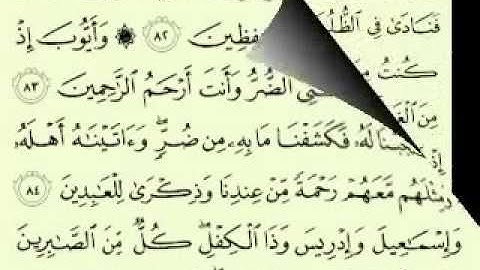 فَنَادَىٰ فِي حَٰفِظِينَ ٨٢ ۞ وَأَيُّوبَ إِذْ
كُنتُ ٱلضُّرُّ وَأَنتَ أَرْحَمُ ٱلرَّٰحِمِينَ ٨٣
مِنَ لَهُۥ فَكَشَفْنَا مَا بِهِۦ مِن ضُرٍّ ۖ وَءَاتَيْنَٰهُ أَهْلَهُۥ
إِذْ
وَمِثْلَهُم مَّعَهُمْ رَحْمَةً مِّنْ عِندِنَا وَذِكْرَىٰ لِلْعَٰبِدِينَ ٨٤
وَإِسْمَٰعِيلَ وَإِدْرِيسَ وَذَا ٱلْكِفْلِ ۖ كُلٌّ مِّنَ ٱلصَّٰبِرِينَ